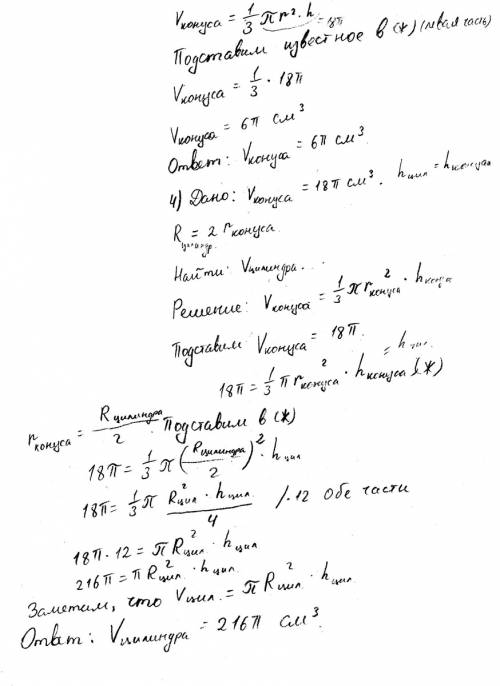 Vконуса = 1/3 π r² · h = 18π
Подставим известное в (*) (левая часть)
Vконуса = 1/3 · 18π
Vконуса = 6π см³
Ответ: Vконуса = 6π см³.
4) Дано: Vконуса = 18π см³. hцил = hконуса
Rцилиндр. = 2 rконуса.
Найти: Vцилиндра...
Решение: Vконуса = 1/3 π rконуса² · hконуса
Подставим Vконуса = 18π.
= hцил.
18π = 1/3 π rконуса² · hконуса (*)
rконуса = Rцилиндра/2. Подставим в (*)
18π = 1/3 π (Rцилиндра/2)² · hцил
18π = 1/3 π Rцил² · hцил/4 /·12 обе части
18π · 12 = π Rцил² · hцил
216π = π Rцил² · hцил.
Заметим, что Vцил. = π Rцил² · hцил.
Ответ: Vцилиндра = 216π см³.